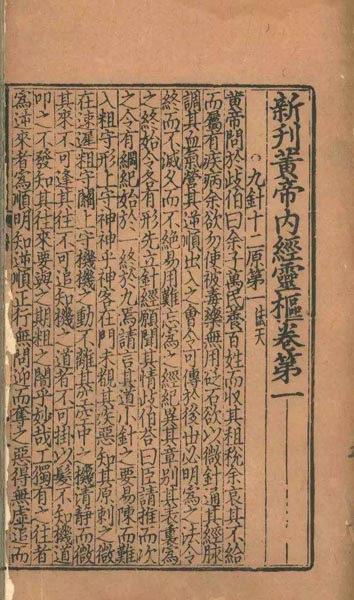 新刊黃帝內經靈樞卷第一
九針十二原第一 法天
黃帝問於歧伯曰余子萬民養百姓而收其租稅余哀其不給
而屬有疾病余欲勿使被毒藥無用砭石欲以微針通其經脉
調其血氣營其逆順出入之會令可傳於後世必明為之法令
終而不滅久而不絕易用難忘為之經紀異其章別其表裏為
之終始令各有形先立針經願聞其情歧伯荅曰臣請推而次
之令有綱紀始於一終於九焉請言其道小針之要易陳而難
入粗守形上守神神乎神客在門未覩其疾惡知其原刺之微
在速遲粗守關上守機機之動不離其空空中之機清靜而微
其來不可逢其往不可追知機之道者不可掛以髮不知機道
叩之不發知其往來要與之期粗之闇乎妙哉工獨有之往者
為逆來者為順明知逆順正行無問迎而奪之惡得無虛追而